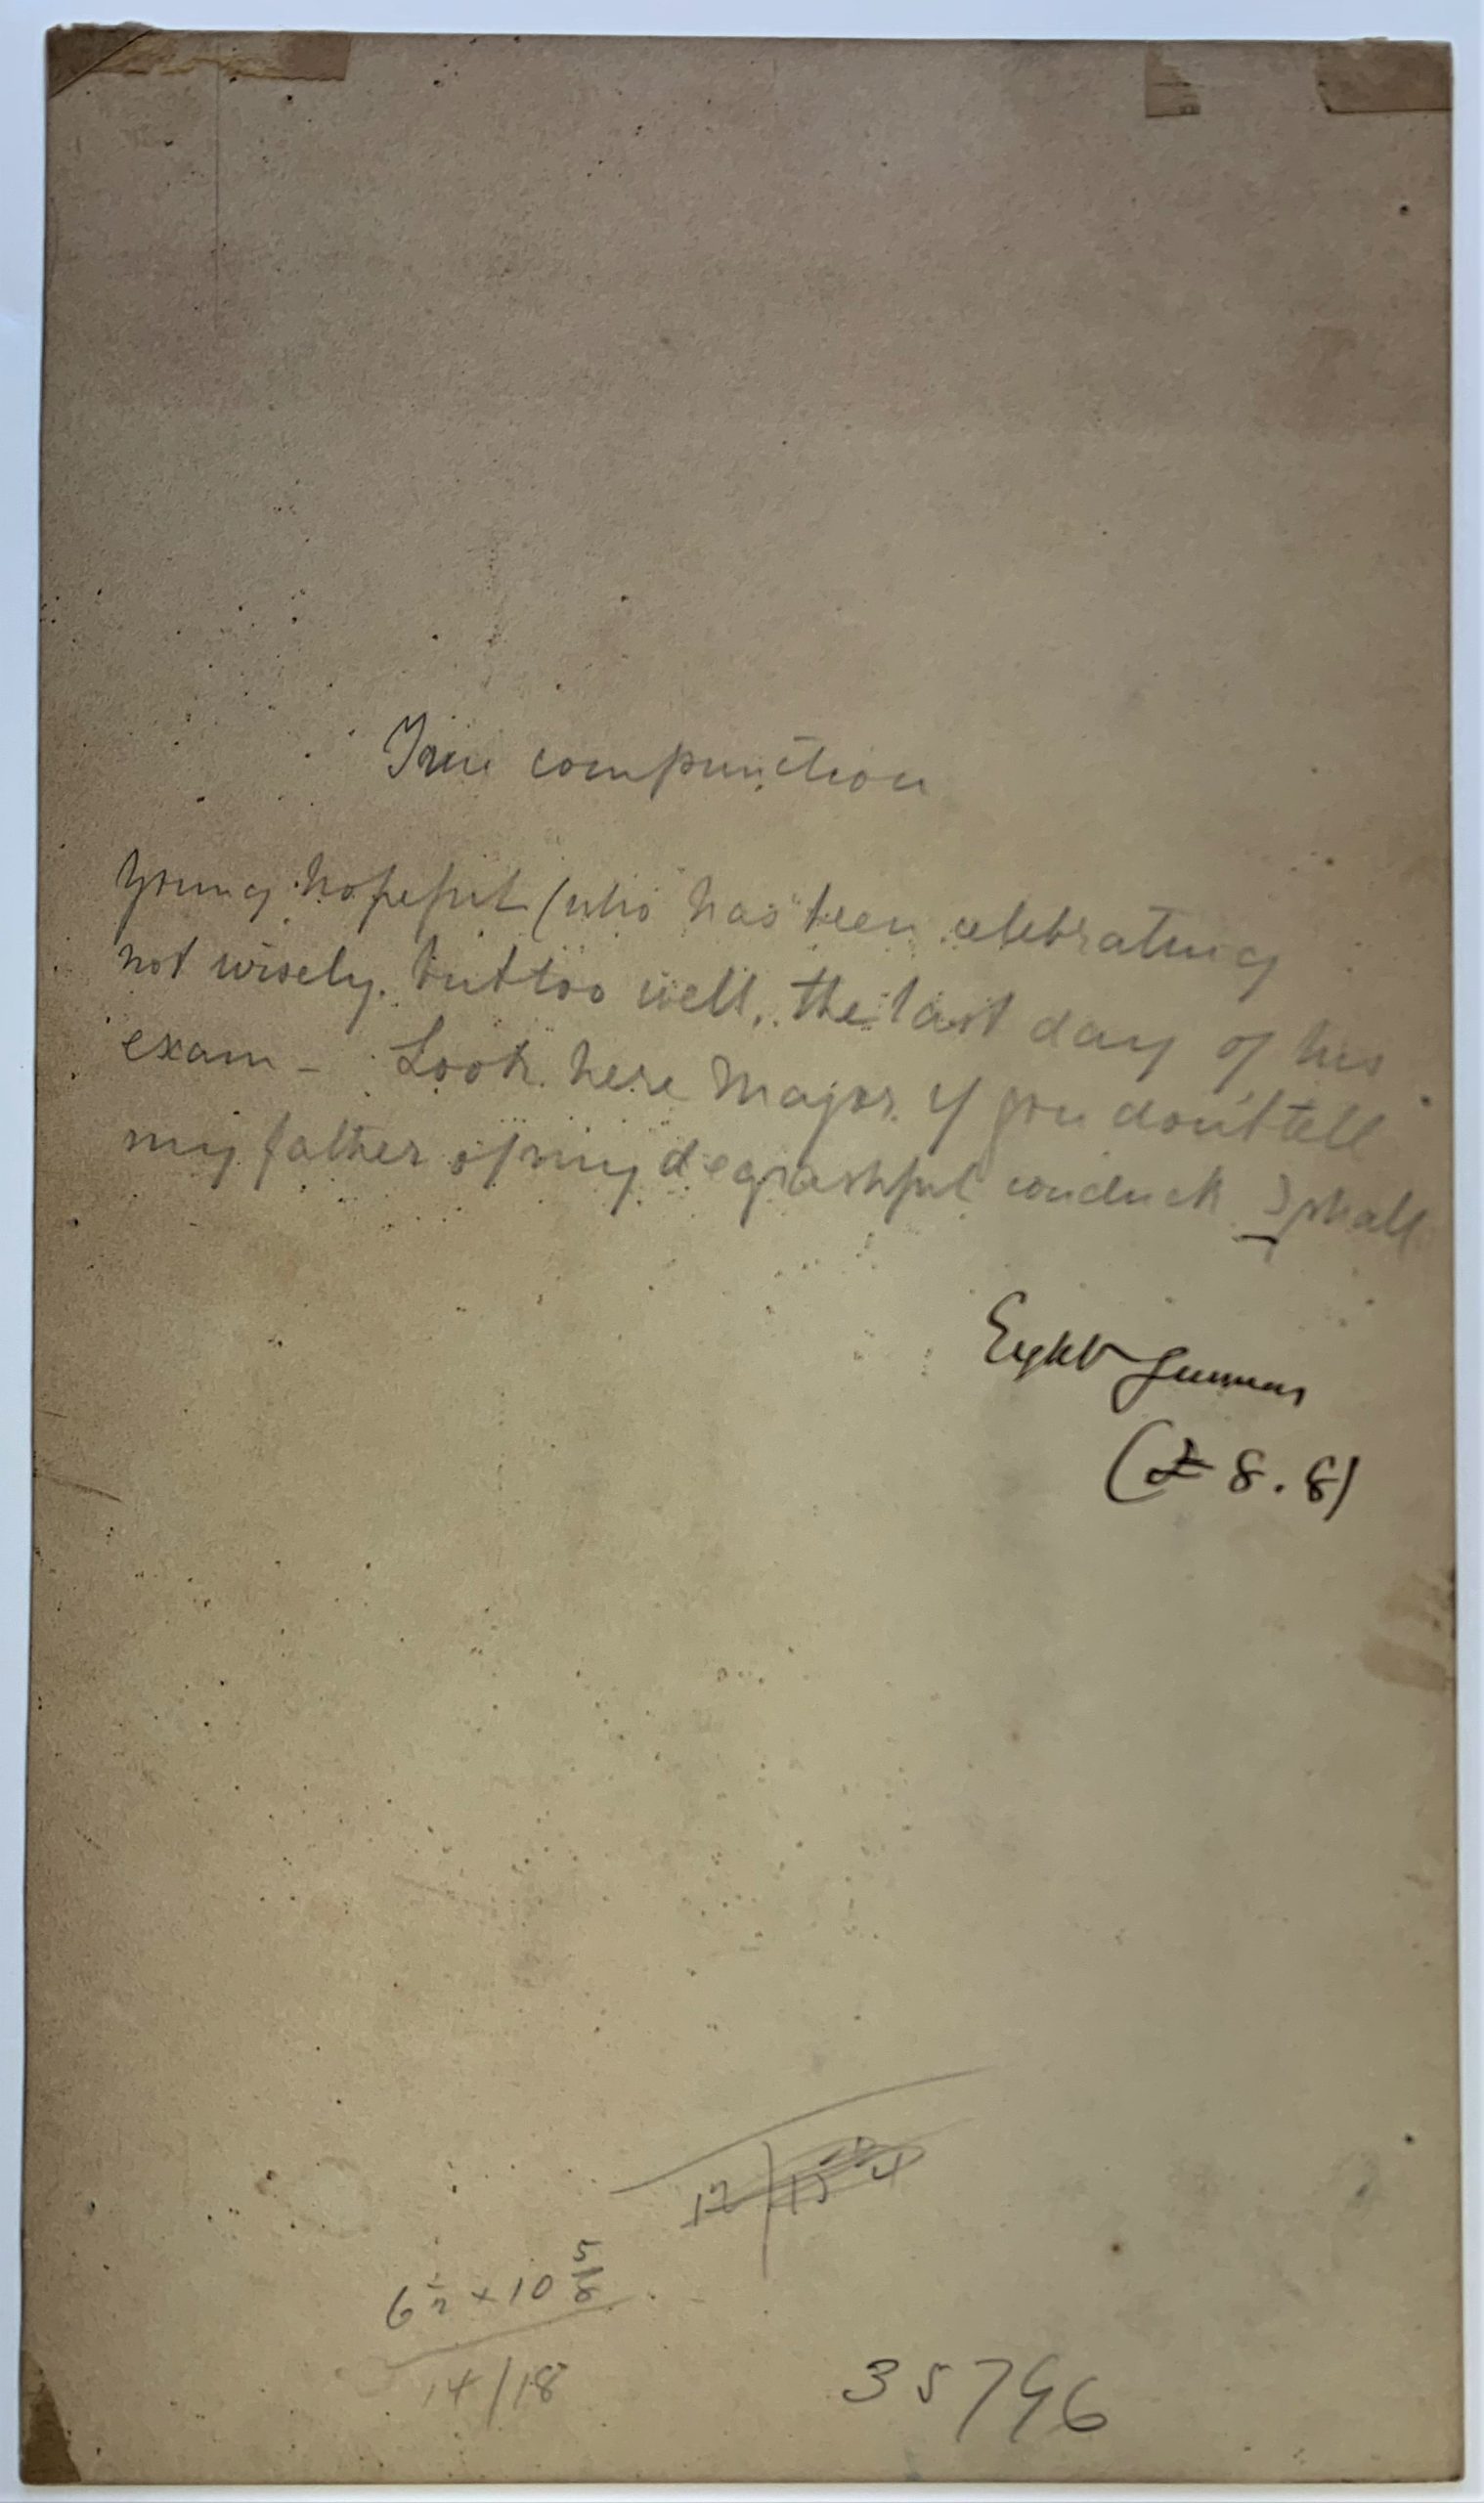 True compunction
Young hopeful (who has been celebrating
not wisely. but too well, the last day of his
exam - Look here Major if you don't tell
my father of my degrashful conduck I shall
Eight Guineas
(£8.8)
12 | 15 4
6 1/2 x 10 5/8
14/18
35796